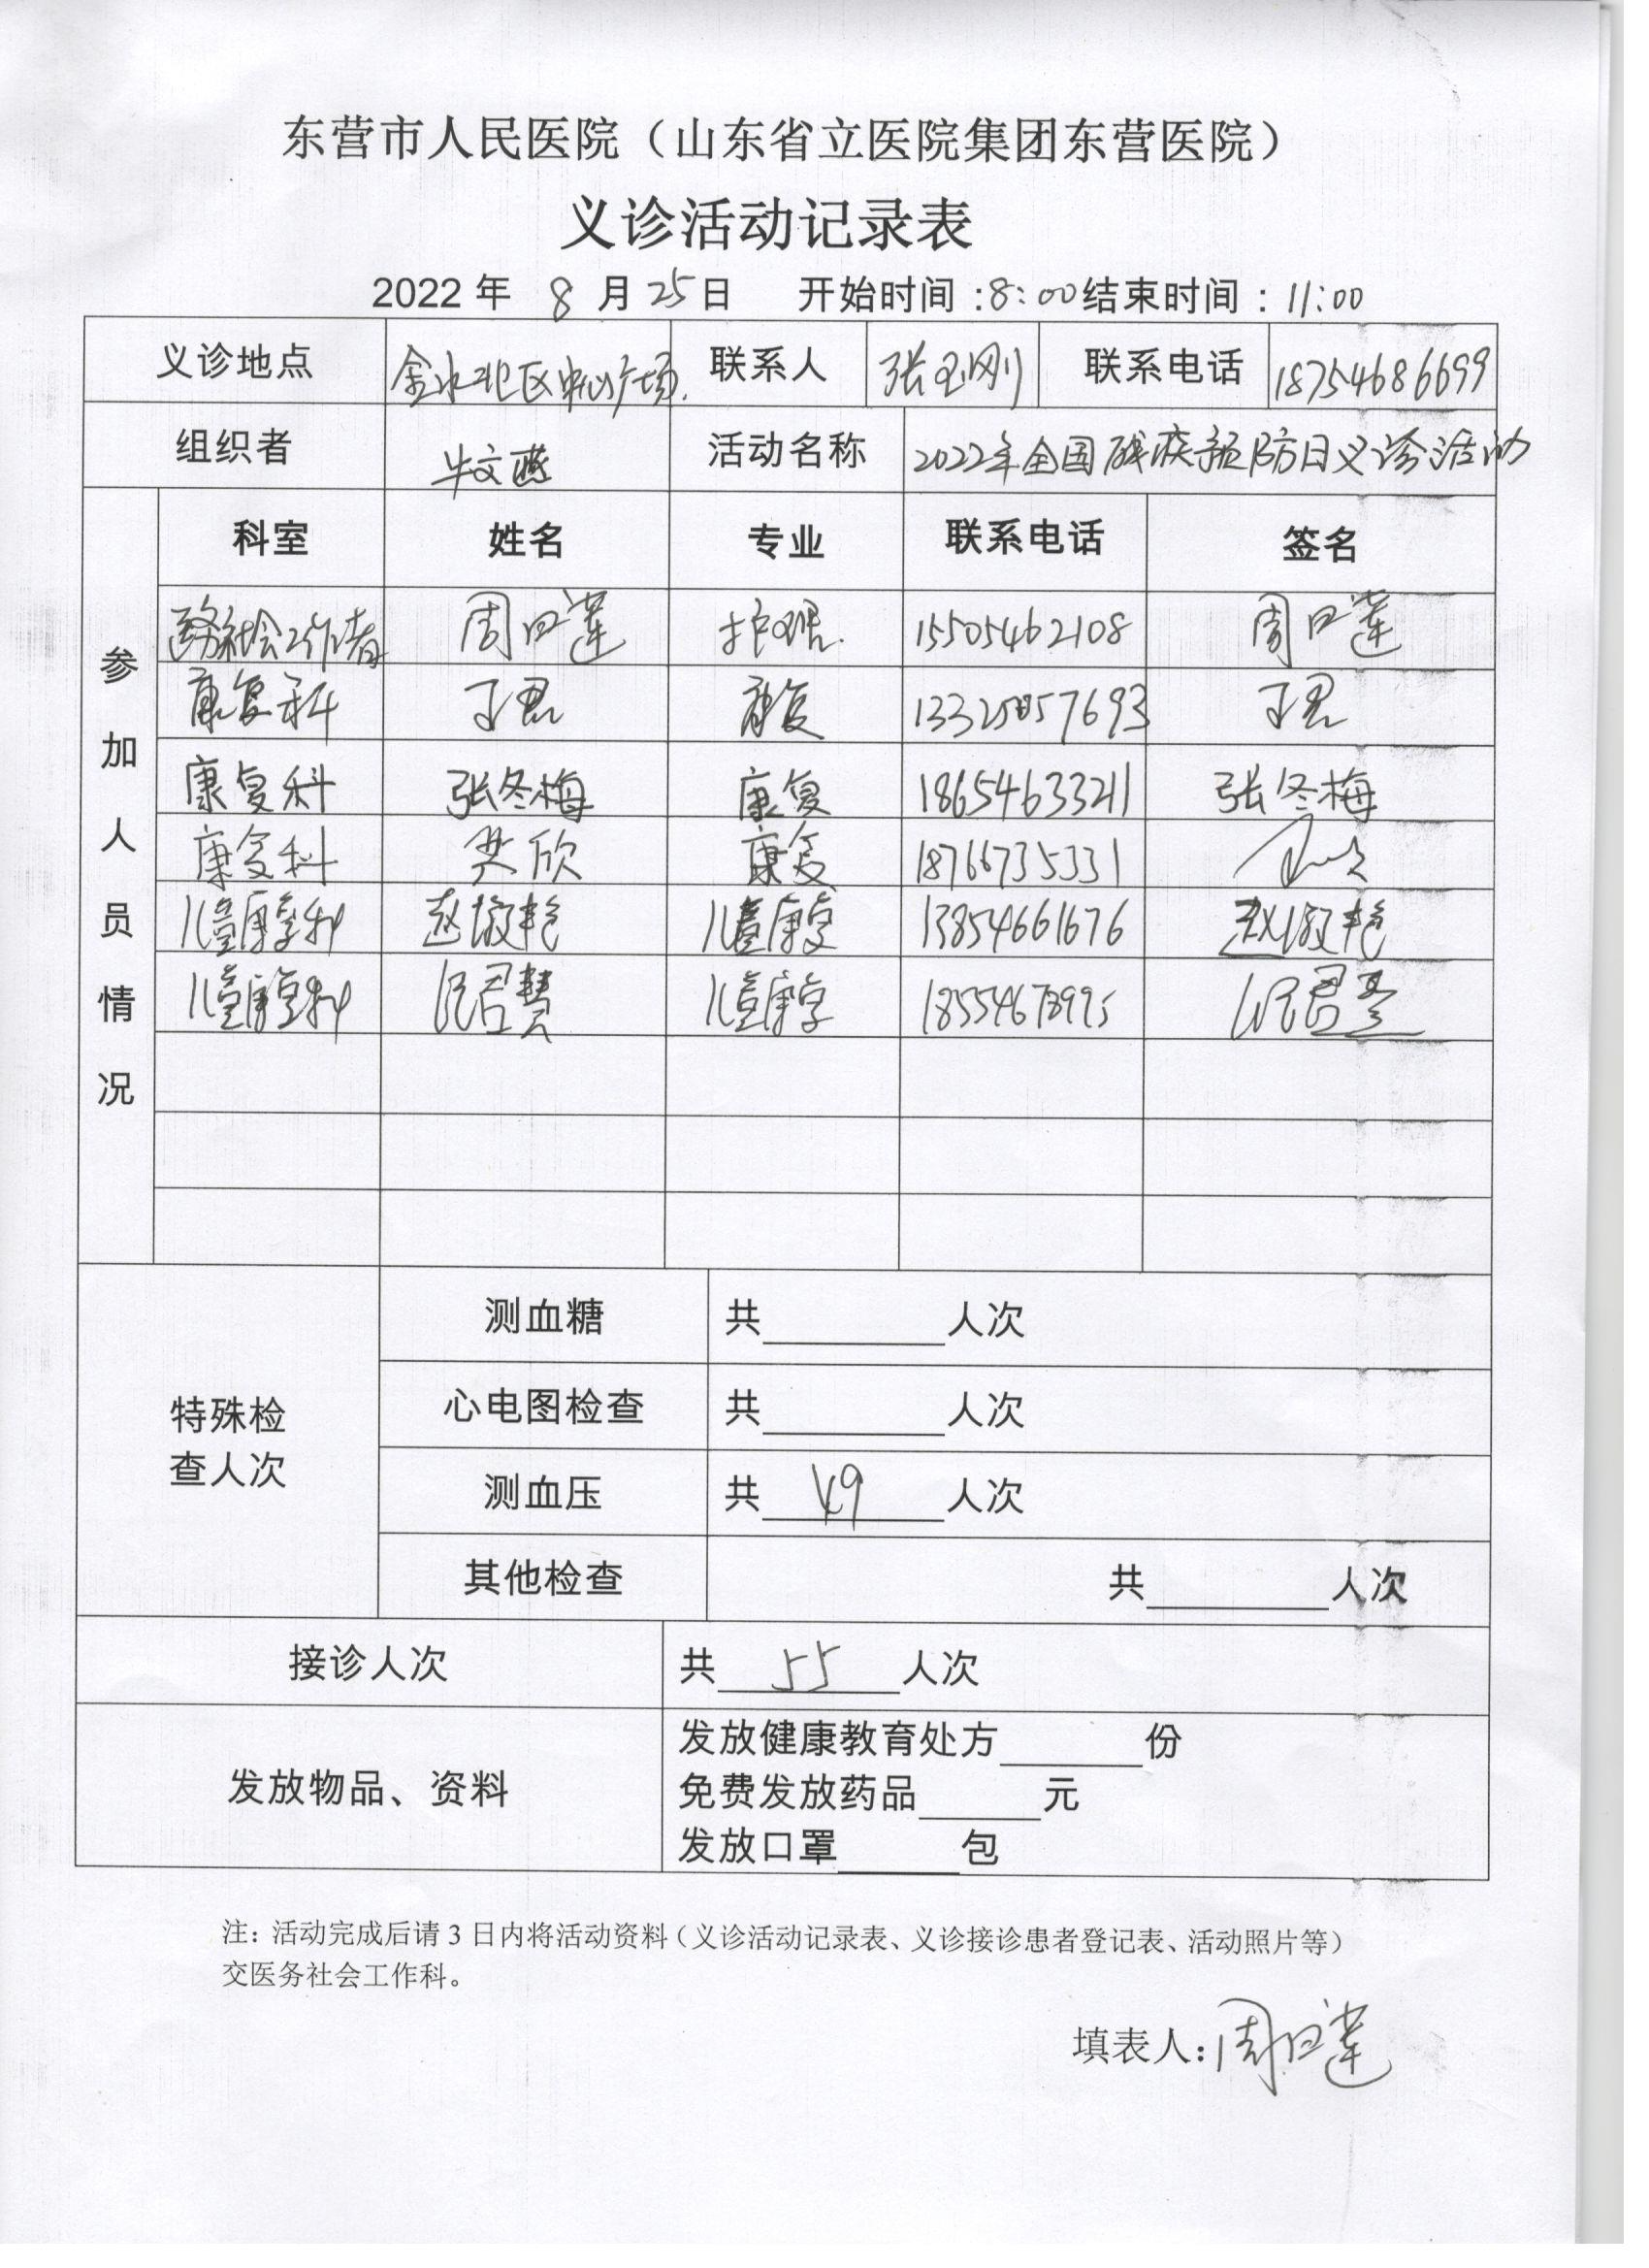 东营市人民医院（山东省立医院集团东营医院）
义诊活动记录表
2022 年 8 月 25 日 开始时间：8:00 结束时间：11:00
义诊地点 金水地区中心广场 联系人 张玉刚 联系电话 18754686699
组织者 牛文燕 活动名称 2022年全国残疾预防日义诊活动
参加人员情况
科室 姓名 专业 联系电话 签名
社会工作者 周 莲 护理 15505462108 周 莲
康复科 康复
康复科 张冬梅 康复 18654633211 张冬梅
康复科 欣 康复 18766735331
儿童康复科 赵 艳 儿童康复 13854661676 赵 艳
儿童康复科 君慧 儿童康复 君
特殊检查人次
测血糖 共 人次
心电图检查 共 人次
测血压 共 49 人次
其他检查 共 人次
接诊人次 共 55 人次
发放物品、资料
发放健康教育处方 份
免费发放药品 元
发放口罩 包
注：活动完成后请 3 日内将活动资料（义诊活动记录表、义诊接诊患者登记表、活动照片等）
交医务社会工作科。
填表人：周 莲